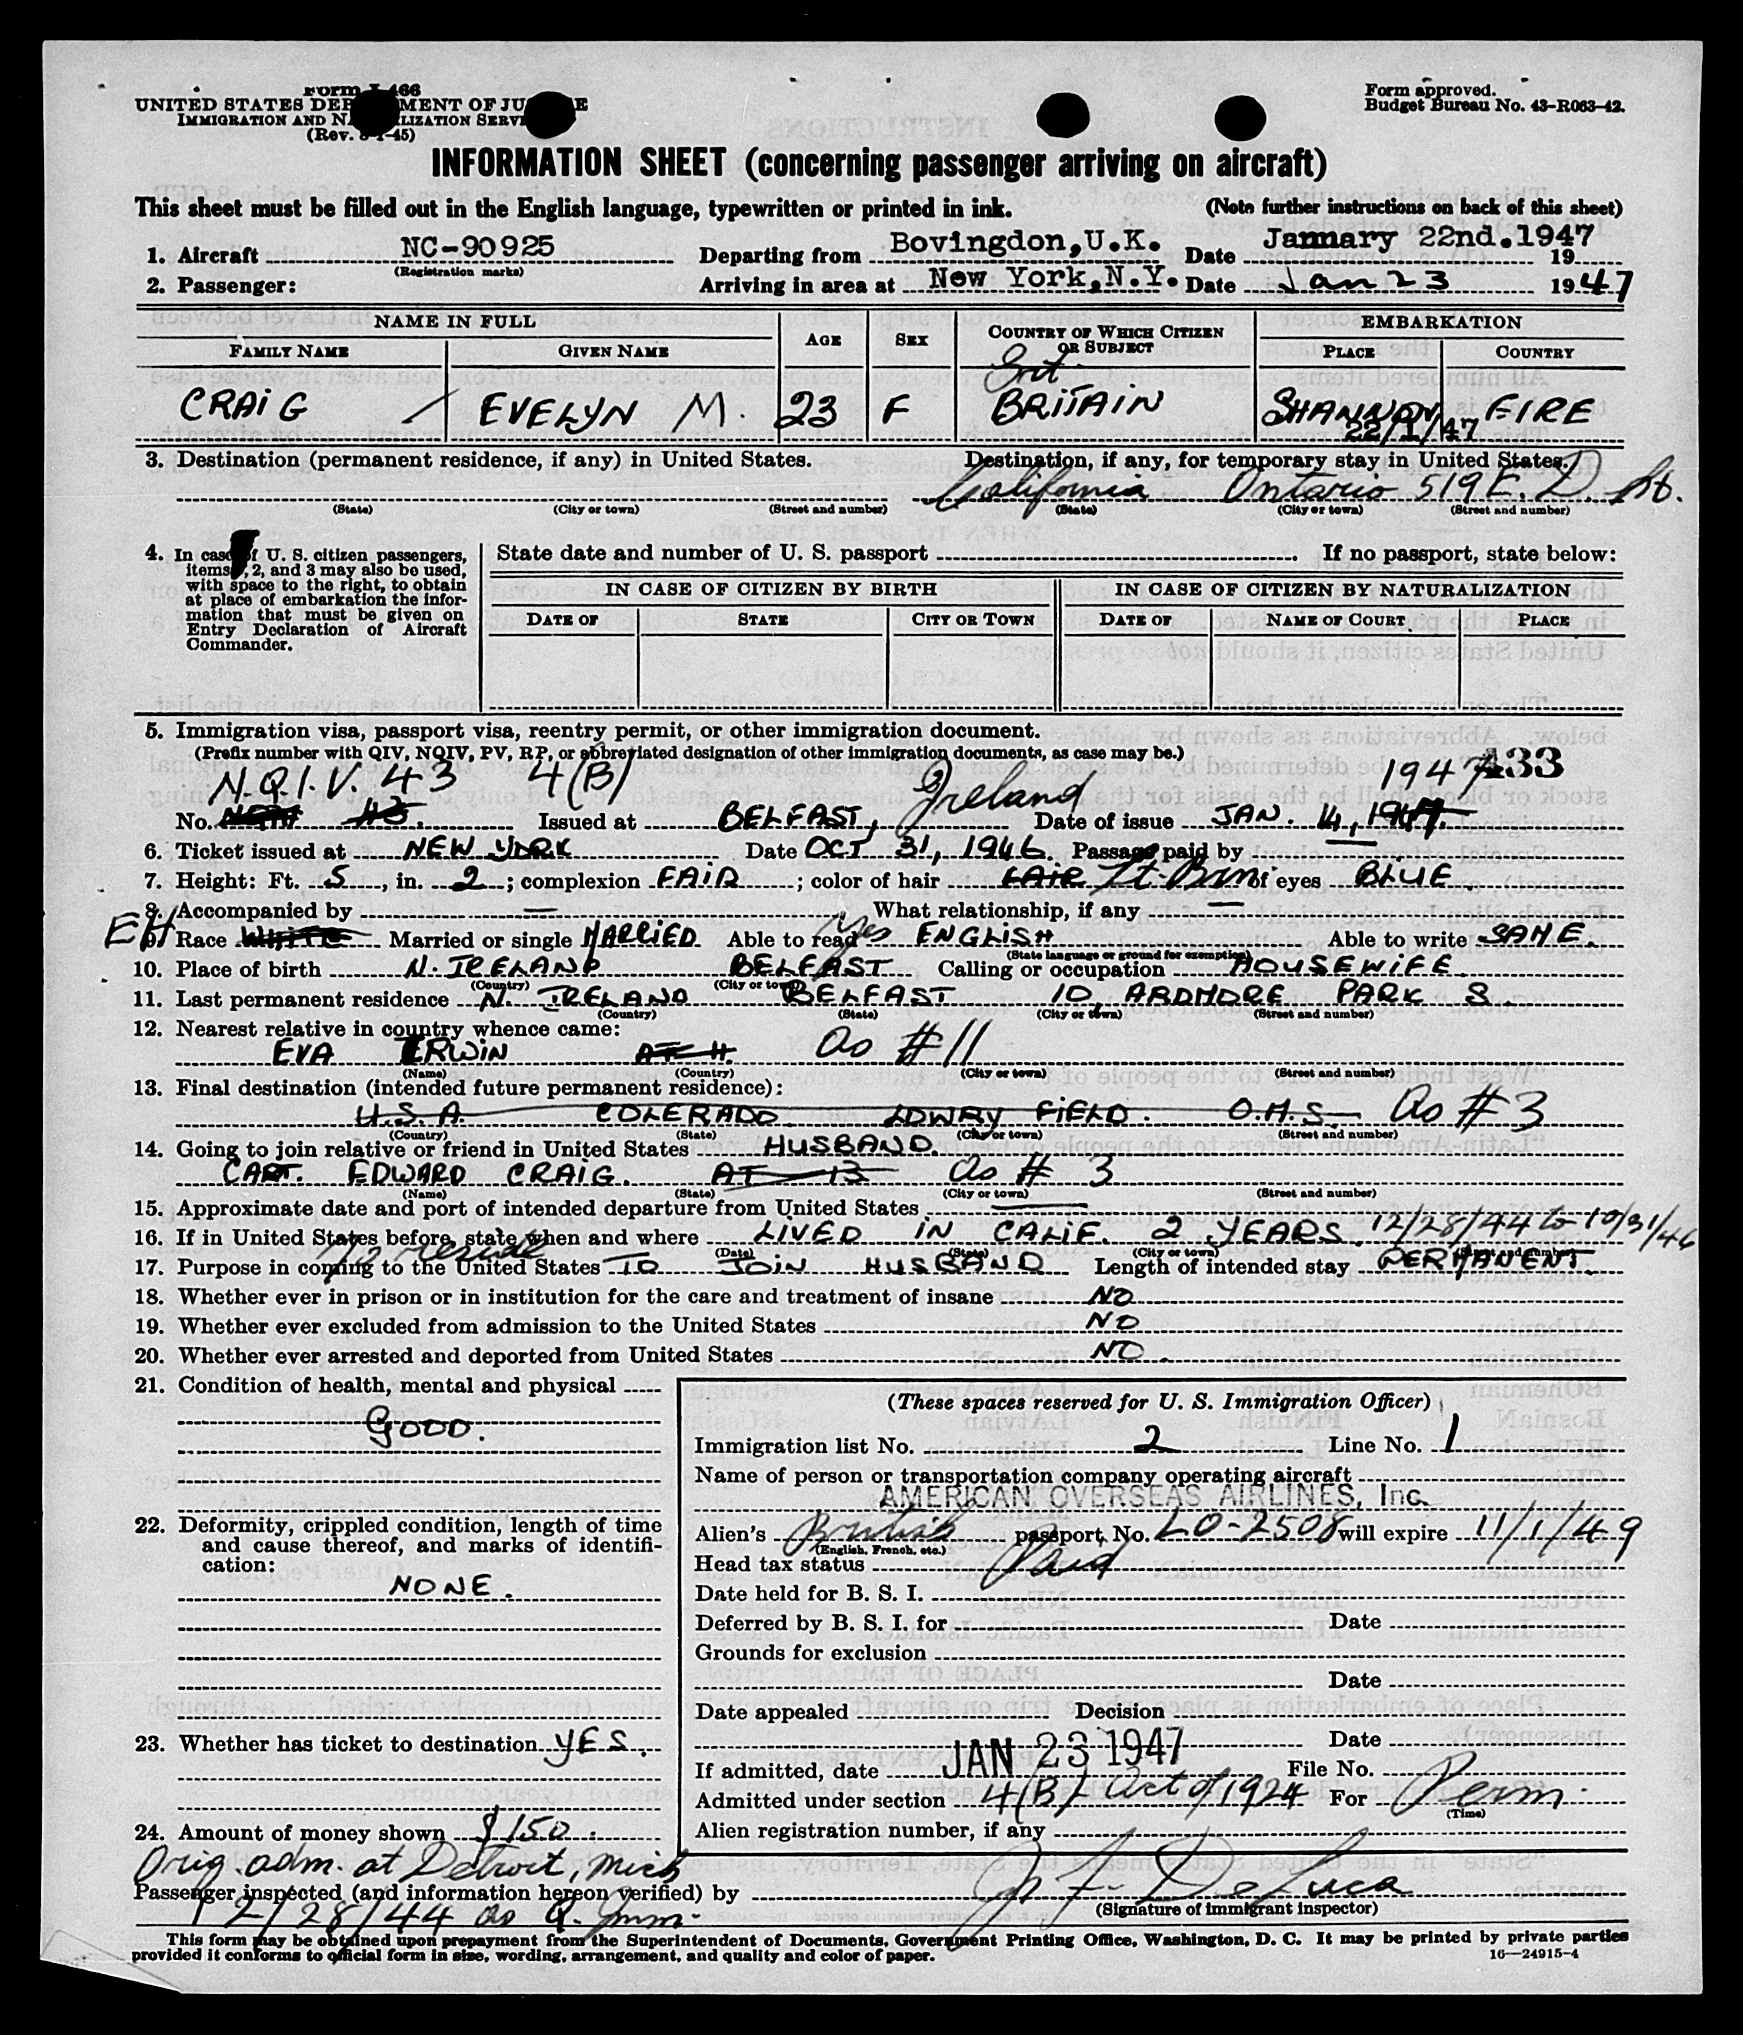 Form I-466
UNITED STATES DEPARTMENT OF JUSTICE
IMMIGRATION AND NATURALIZATION SERVICE
(Rev. 8-1-45)
Form approved.
Budget Bureau No. 43-R063-42.
INFORMATION SHEET (concerning passenger arriving on aircraft)
This sheet must be filled out in the English language, typewritten or printed in ink. (Note further instructions on back of this sheet)
1. Aircraft NC-90925 Departing from Bovingdon, U.K. Date January 22nd. 1947 19
(Registration marks)
2. Passenger: Arriving in area at New York, N.Y. Date Jan 23 1947
NAME IN FULL AGE SEX COUNTRY OF WHICH CITIZEN OR SUBJECT EMBARKATION
FAMILY NAME GIVEN NAME PLACE COUNTRY
Grt.
CRAIG EVELYN M. 23 F BRITAIN SHANNON EIRE
22/1/47
3. Destination (permanent residence, if any) in United States. Destination, if any, for temporary stay in United States.
California Ontario 519 E. D. St.
(State) (City or town) (Street and number) (State) (City or town) (Street and number)
4. In case of U. S. citizen passengers, items 1, 2, and 3 may also be used, with space to the right, to obtain at place of embarkation the information that must be given on Entry Declaration of Aircraft Commander.
State date and number of U. S. passport If no passport, state below:
IN CASE OF CITIZEN BY BIRTH IN CASE OF CITIZEN BY NATURALIZATION
DATE OF STATE CITY OR TOWN DATE OF NAME OF COURT PLACE
5. Immigration visa, passport visa, reentry permit, or other immigration document.
(Prefix number with QIV, NQIV, PV, RP, or abbreviated designation of other immigration documents, as case may be.)
N.Q.I.V. 43 4(B) Ireland 1947 433
No. 43. Issued at BELFAST, Date of issue JAN. 14, 1947.
6. Ticket issued at NEW YORK Date OCT 31, 1946. Passage paid by
7. Height: Ft. 5, in. 2; complexion FAIR; color of hair FAIR Lt. Brn of eyes BLUE.
8. Accompanied by — What relationship, if any —
EH 9. Race WHITE Married or single MARRIED Able to read Yes ENGLISH Able to write SAME.
(State language or ground for exemption)
10. Place of birth N. IRELAND BELFAST Calling or occupation HOUSEWIFE.
(Country) (City or town)
11. Last permanent residence N. IRELAND BELFAST 10, ARDMORE PARK S.
(Country) (State) (City or town) (Street and number)
12. Nearest relative in country whence came:
EVA ERWIN AT 11. As #11
(Name) (Country) (City or town) (Street and number)
13. Final destination (intended future permanent residence):
U.S.A. COLERADO LOWRY FIELD. O.H.S. As # 3
(Country) (State) (City or town) (Street and number)
14. Going to join relative or friend in United States HUSBAND.
CAPT. EDWARD CRAIG. AT 13 As # 3
(Name) (State) (City or town) (Street and number)
15. Approximate date and port of intended departure from United States —
16. If in United States before, state when and where LIVED IN CALIF. 2 YEARS. 12/28/44 to 10/31/46
(Date) (State) (City or town) (Street and number)
To reside
17. Purpose in coming to the United States TO JOIN HUSBAND Length of intended stay PERMANENT.
18. Whether ever in prison or in institution for the care and treatment of insane NO
19. Whether ever excluded from admission to the United States NO
20. Whether ever arrested and deported from United States NO.
21. Condition of health, mental and physical
GOOD.
22. Deformity, crippled condition, length of time and cause thereof, and marks of identification:
NONE.
23. Whether has ticket to destination YES.
24. Amount of money shown $150.
(These spaces reserved for U. S. Immigration Officer)
Immigration list No. 2 Line No. 1
Name of person or transportation company operating aircraft
AMERICAN OVERSEAS AIRLINES, Inc.
Alien's British passport, No. LO-2508 will expire 11/1/49
(English, French, etc.)
Head tax status Paid
Date held for B. S. I.
Deferred by B. S. I. for Date
Grounds for exclusion
Date
Date appealed Decision
Date
If admitted, date JAN 23 1947 File No.
Admitted under section 4(B) Act of 1924 For Perm.
(Time)
Alien registration number, if any
Orig. adm. at Detroit, Mich
Passenger inspected (and information hereon verified) by J. F. DeLuca
(Signature of immigrant inspector)
12/28/44 as Q. Imm.
This form may be obtained upon prepayment from the Superintendent of Documents, Government Printing Office, Washington, D. C. It may be printed by private parties
provided it conforms to official form in size, wording, arrangement, and quality and color of paper. 16—24915-4